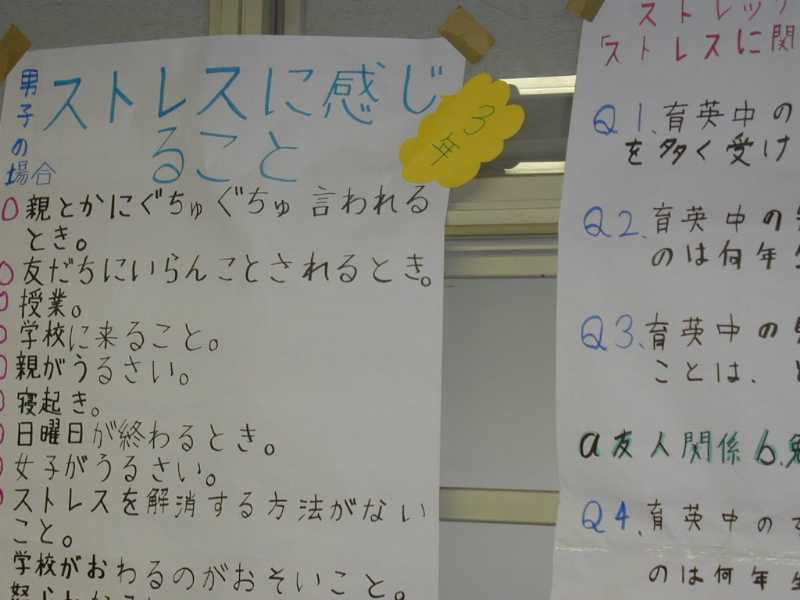 男子の場合
ストレスに感じ
ること
3年
親とかにぐちゅぐちゅ言われる
とき。
友だちにいらんことされるとき。
授業。
学校に来ること。
親がうるさい。
寝起き。
日曜日が終わるとき。
女子がうるさい。
ストレスを解消する方法がない
こと。
学校がおわるのがおそいこと。
ストレッ
「ストレスに関
Q1、育英中の
を多く受け
Q2、育英中の
のは何年
Q3、育英中の
ことは、
a友人関係 b.勉
Q4、育英中の
のは何年